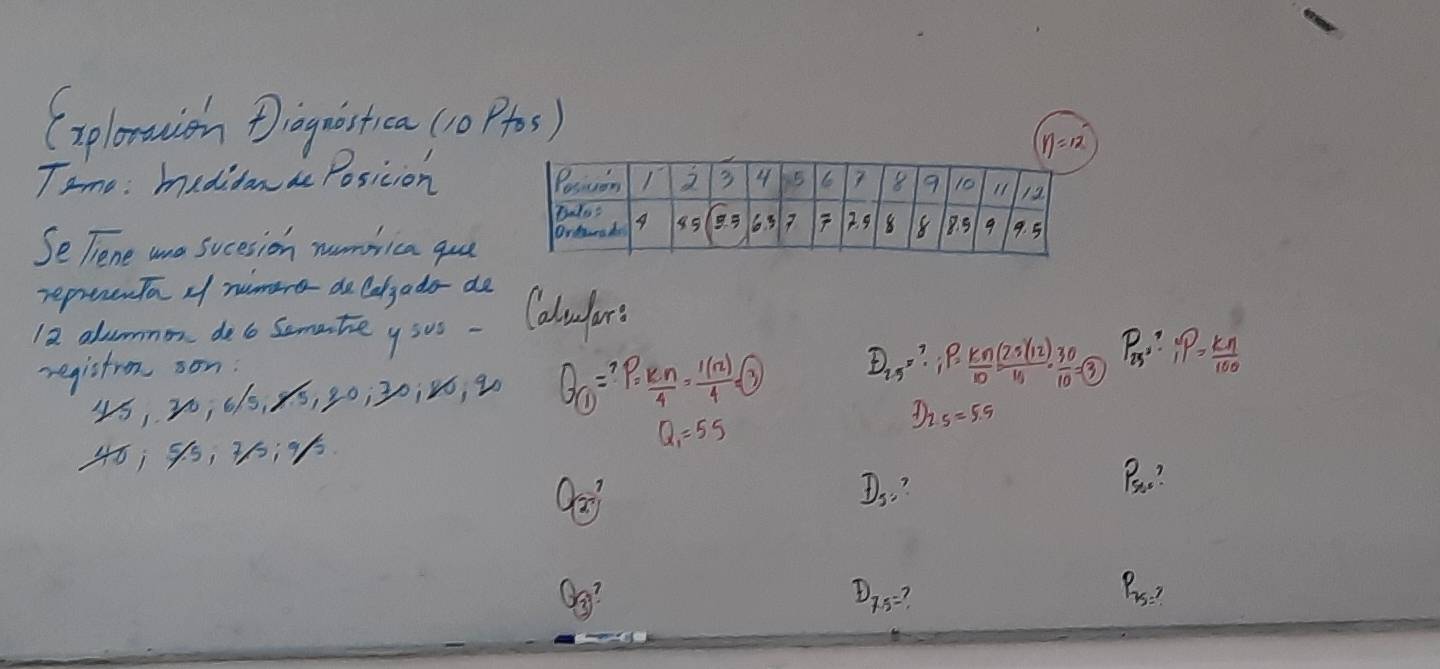 Exploración Diagnóstica (10 Ptos)
Tema: Medidas de Posición
Se Tiene una sucesión numérica que
representa el número de Calzado de
12 alumnos de 6 Semestre y sus -
registros son:
6.5
5.5; 7.5; 9.5
n=12
Posición 1 2 3 4 5 6 7 8 9 10 11 12
Datos Ordenados 4 4.5 5.5 6.5 7 7 7.5 8 8 8.5 9 9.5
Calcular:
Q1=? P=kn/4=1(12)/4=3
Q1=5.5
D2.5=?; P=kn/10=(2.5)(12)/10=30/10=3
D2.5=5.5
P25=?; P=kn/100
Q2=?
D5=?
P50=?
Q3=?
D7.5=?
P75=?